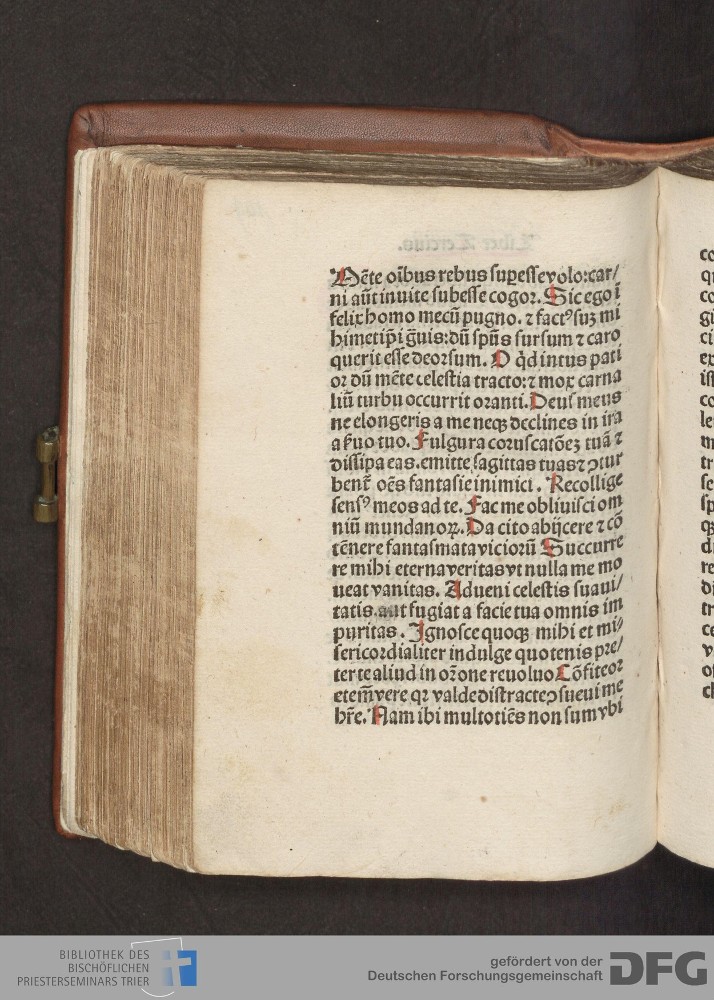 Mēte oībus rebus suꝑesse volo:car/
ni aūt inuite subesse cogor. Sic ego ī
felix homo mecū pugno. ⁊ factꝰ suꝫ mi
himetip̄i g̈uis:dū sp̄us sursum ⁊ caro
querit esse deorsum. O q̇d intus pati
or dū mēte celestia tracto:⁊ mox carna
liū turbu occurrit oranti. Deus meus
ne elongeris a me neqꝫ declines in ira
a ẜuo tuo. Fulgura coruscatōeꝫ tuā ⁊
dissipa eas.emitte sagittas tuas ⁊ ꝯtur
bent̄ oēs fantasie inimici. Recollige
sensꝰ meos ad te. Fac me obliuisci om
niū mundanoꝝ. Da cito abijcere ⁊ cō
tēnere fantasmata viciorū Succurre
re mihi eterna veritas vt nulla me mo
ueat vanitas. Adueni celestis suaui/
tatis.aut fugiat a facie tua omnis im
puritas. Ignosce quoqꝫ mihi et mi/
sericordialiter indulge quotenis pre/
ter te aliud in oꝛ̄one reuoluo Cōfiteoꝛ
etem̄ vere qꝛ valde distracte ꝯsueui me
hr̄e. Nam ibi multotiēs non sum vbi
BIBLIOTHEK DES
BISCHÖFLICHEN
PRIESTERSEMINARS TRIER
gefördert von der
Deutschen Forschungsgemeinschaft
DFG